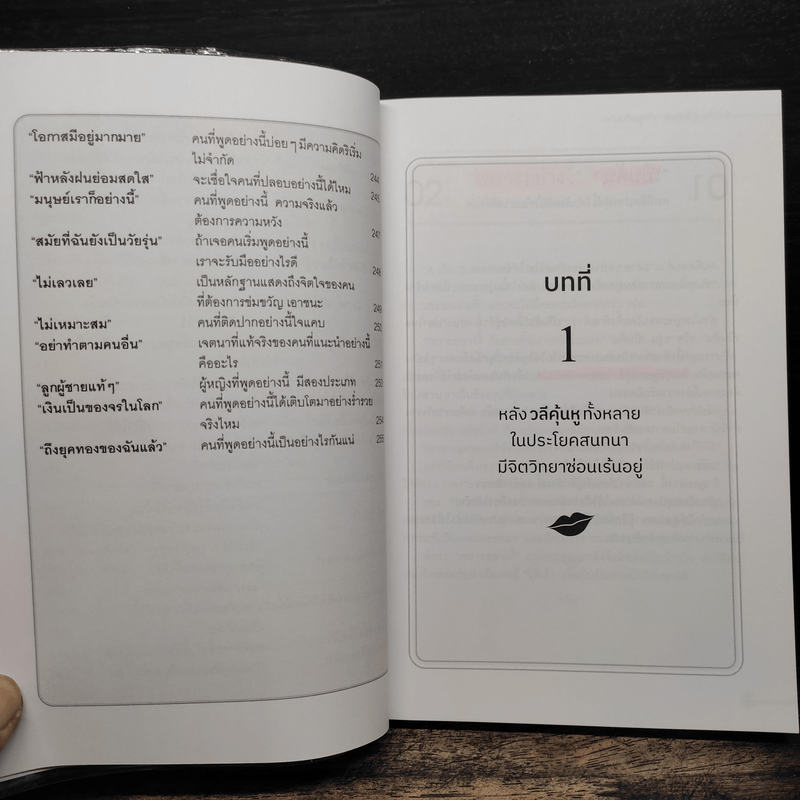 "โอกาสมีอยู่มากมาย" คนที่พูดอย่างนี้บ่อยๆ มีความคิดริเริ่ม
ไม่จำกัด 244
"ฟ้าหลังฝนย่อมสดใส" จะเชื่อใจคนที่ปลอบอย่างนี้ได้ไหม 246
"มนุษย์เราก็อย่างนี้" คนที่พูดอย่างนี้ ความจริงแล้ว
ต้องการความหวัง 247
"สมัยที่ฉันยังเป็นวัยรุ่น" ถ้าเจอคนเริ่มพูดอย่างนี้
เราจะรับมืออย่างไรดี 248
"ไม่เลวเลย" เป็นหลักฐานแสดงถึงจิตใจของคน
ที่ต้องการข่มขวัญ เอาชนะ 249
"ไม่เหมาะสม" คนที่ติดปากอย่างนี้ใจแคบ 250
"อย่าทำตามคนอื่น" เจตนาที่แท้จริงของคนที่แนะนำอย่างนี้
คืออะไร 251
"ลูกผู้ชายแท้ๆ" ผู้หญิงที่พูดอย่างนี้ มีสองประเภท 253
"เงินเป็นของจรในโลก" คนที่พูดอย่างนี้ได้เติบโตมาอย่างร่ำรวย
จริงไหม 254
"ถึงยุคทองของฉันแล้ว" คนที่พูดอย่างนี้เป็นอย่างไรกันแน่ 255
บทที่
1
หลังวลีคุ้นหูทั้งหลาย
ในประโยคสนทนา
มีจิตวิทยาซ่อนเร้นอยู่